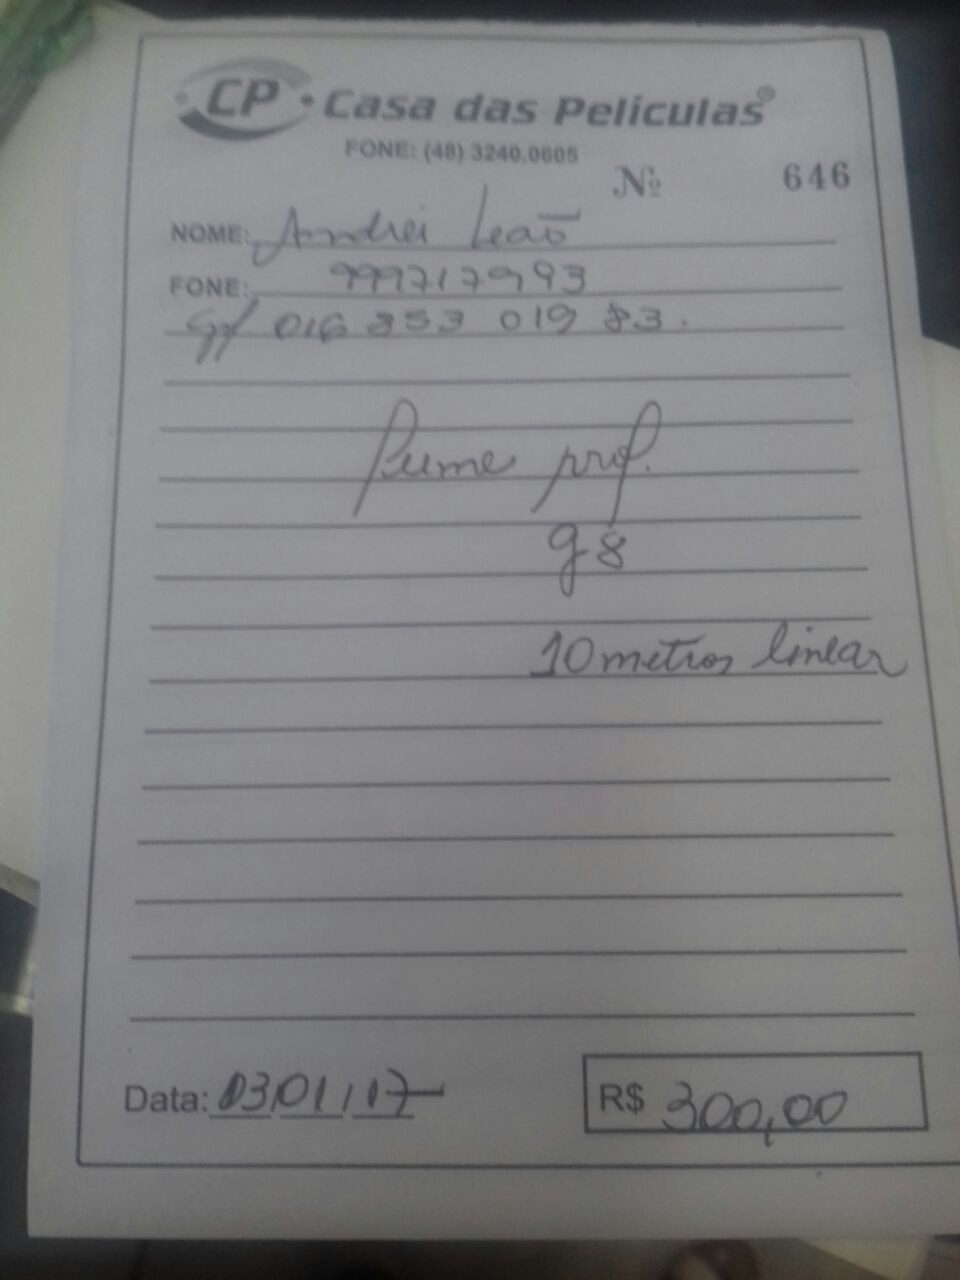 CP Casa das Películas®
FONE: (48) 3240.0605
Nº 646
NOME: Andrei Leaõ
FONE: 999717993
016 353 019 83.
prof.
g8
10 metros linear
Data: 03/01/17
R$ 300,00